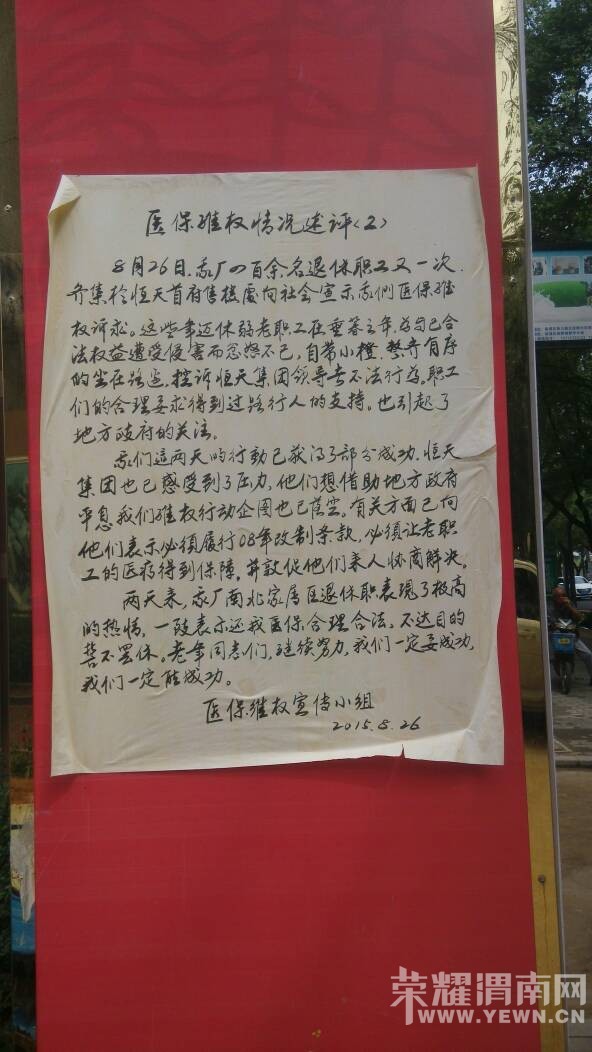 医保维权情况述评(2)
8月26日.我厂四百余名退休职工又一次.
齐集於恒天首府售楼处向社会宣示我们医保维
权诉求。这些年迈体弱老职工在垂暮之年,为自己合
法权益遭受侵害而忿怒不已,自带小橙.整齐有序
的坐在路边.控诉恒天集团领导者不法行为,职工
们的合理要求得到过路行人的支持。也引起了
地方政府的关注。
我们這两天的行动已获得了部分成功.恒天
集团也已感受到了压力,他们想借助地方政府
平息我们维权行动企图也已落空。有关方面已向
他们表示必须履行08年改制条款,必须让老职
工的医疗得到保障,并敦促他们来人协商解决。
两天来,我厂南北家属区退休职表现了极高
的热情,一致表示还我医保合理合法。不达目的
誓不罢休。老年同志们,继续努力,我们一定要成功,
我们一定能成功。
医保维权宣传小组
2015.8.26
荣耀渭南网
WWW.YEWN.CN